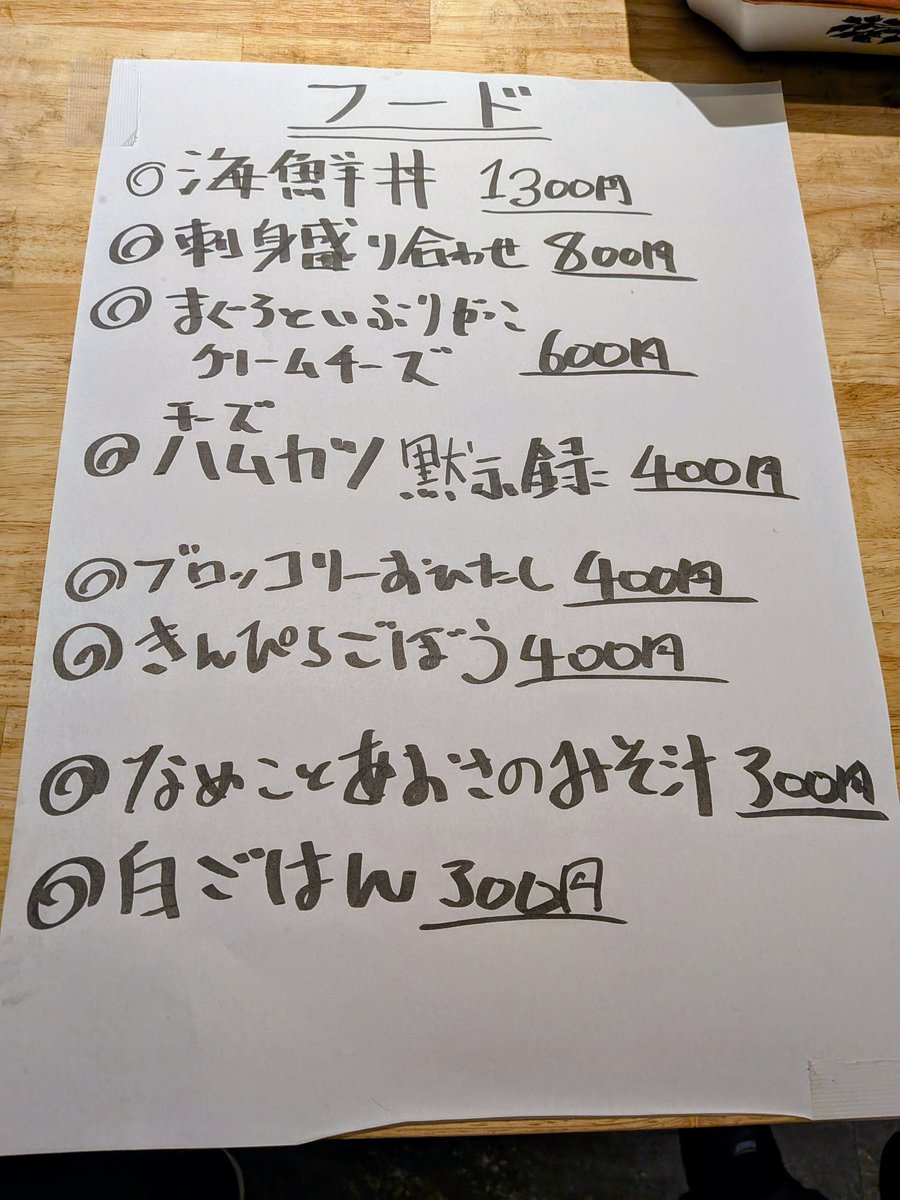 フード
◎海鮮丼 1300円
◎刺身盛り合わせ 800円
◎まぐろといぶりがっこ
クリームチーズ 600円
チーズ
◎ハムカツ黙示録 400円
◎ブロッコリーおひたし 400円
◎きんぴらごぼう 400円
◎なめことあおさのみそ汁 300円
◎白ごはん 300円